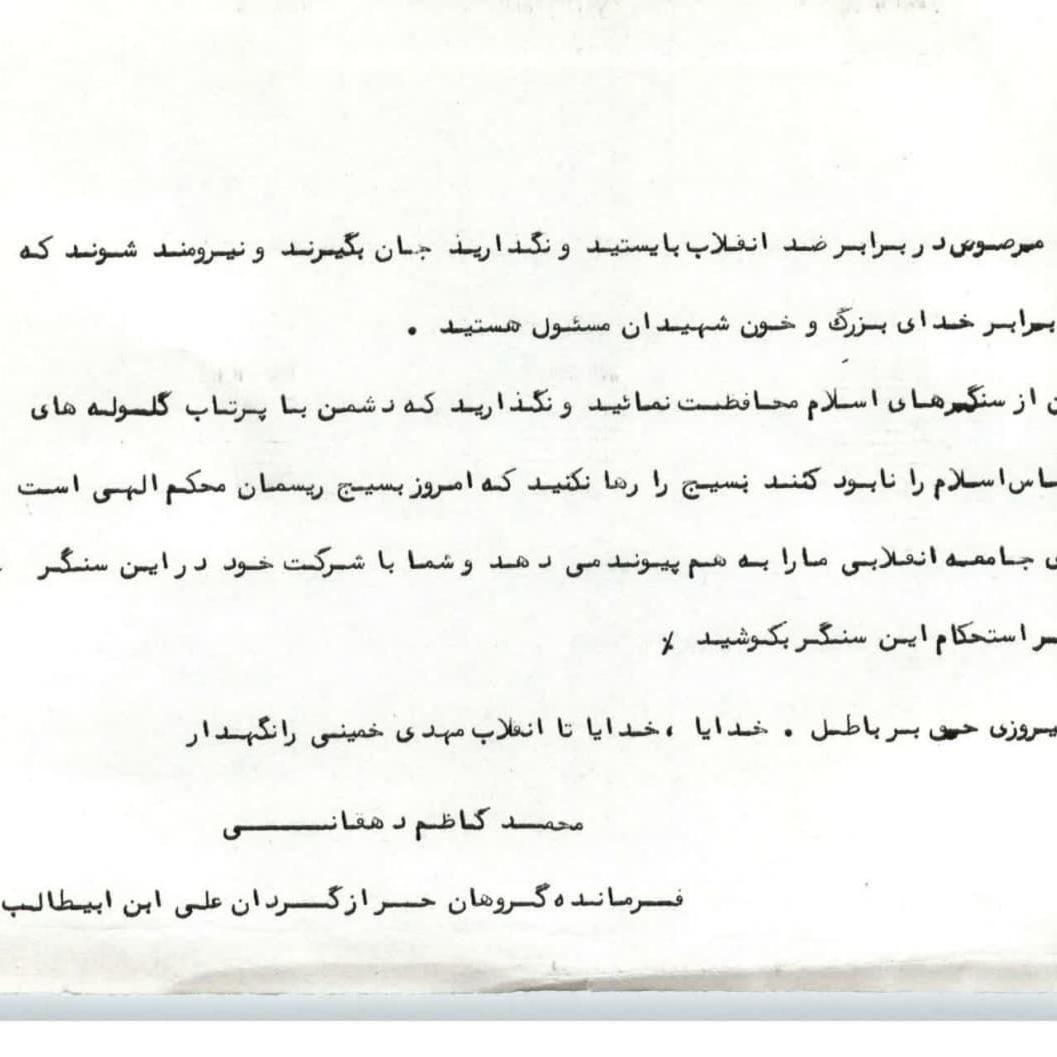 مرصوص در برابر ضد انقلاب بایستید و نگذارید جان بگیرند و نیرومند شوند که
برابر خدای بزرگ و خون شهیدان مسئول هستید .
از سنگرهای اسلام محافظت نمائید و نگذارید که دشمن با پرتاب گلوله های
اسلام را نابود کنند بسیج را رها نکنید که امروز بسیج ریسمان محکم الهی است
جامعه انقلابی ما را به هم پیوند می دهد و شما با شرکت خود در این سنگر
استحکام این سنگر بکوشید ٪
حق بر باطل . خدایا ، خدایا تا انقلاب مهدی خمینی را نگهدار
محمد کاظم دهقانی
فرمانده گروهان حر از گردان علی ابن ابیطالب